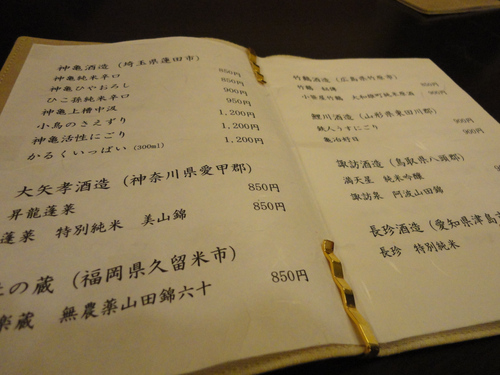 神亀酒造（埼玉県蓮田市）
神亀純米辛口 850円
神亀ひやおろし 850円
ひこ孫純米辛口 900円
神亀上槽中汲 950円
小鳥のさえずり 1,200円
神亀活性にごり 1,200円
かるくいっぱい（300ml） 1,200円
大矢孝酒造（神奈川県愛甲郡）
昇龍蓬莱 850円
蓬莱 特別純米 美山錦 850円
の蔵（福岡県久留米市）
楽蔵 無農薬山田錦六十 850円
竹鶴酒造（広島県竹原市）
竹鶴 秘傳
小笹屋竹鶴 大和雄町純米原酒 900円
鯉川酒造（山形県東田川郡）
鉄人うすにごり 900円
亀治好日 900円
諏訪酒造（鳥取県八頭郡）
満天星 純米吟醸
諏訪泉 阿波山田錦
長珍酒造（愛知県津島
長珍 特別純米